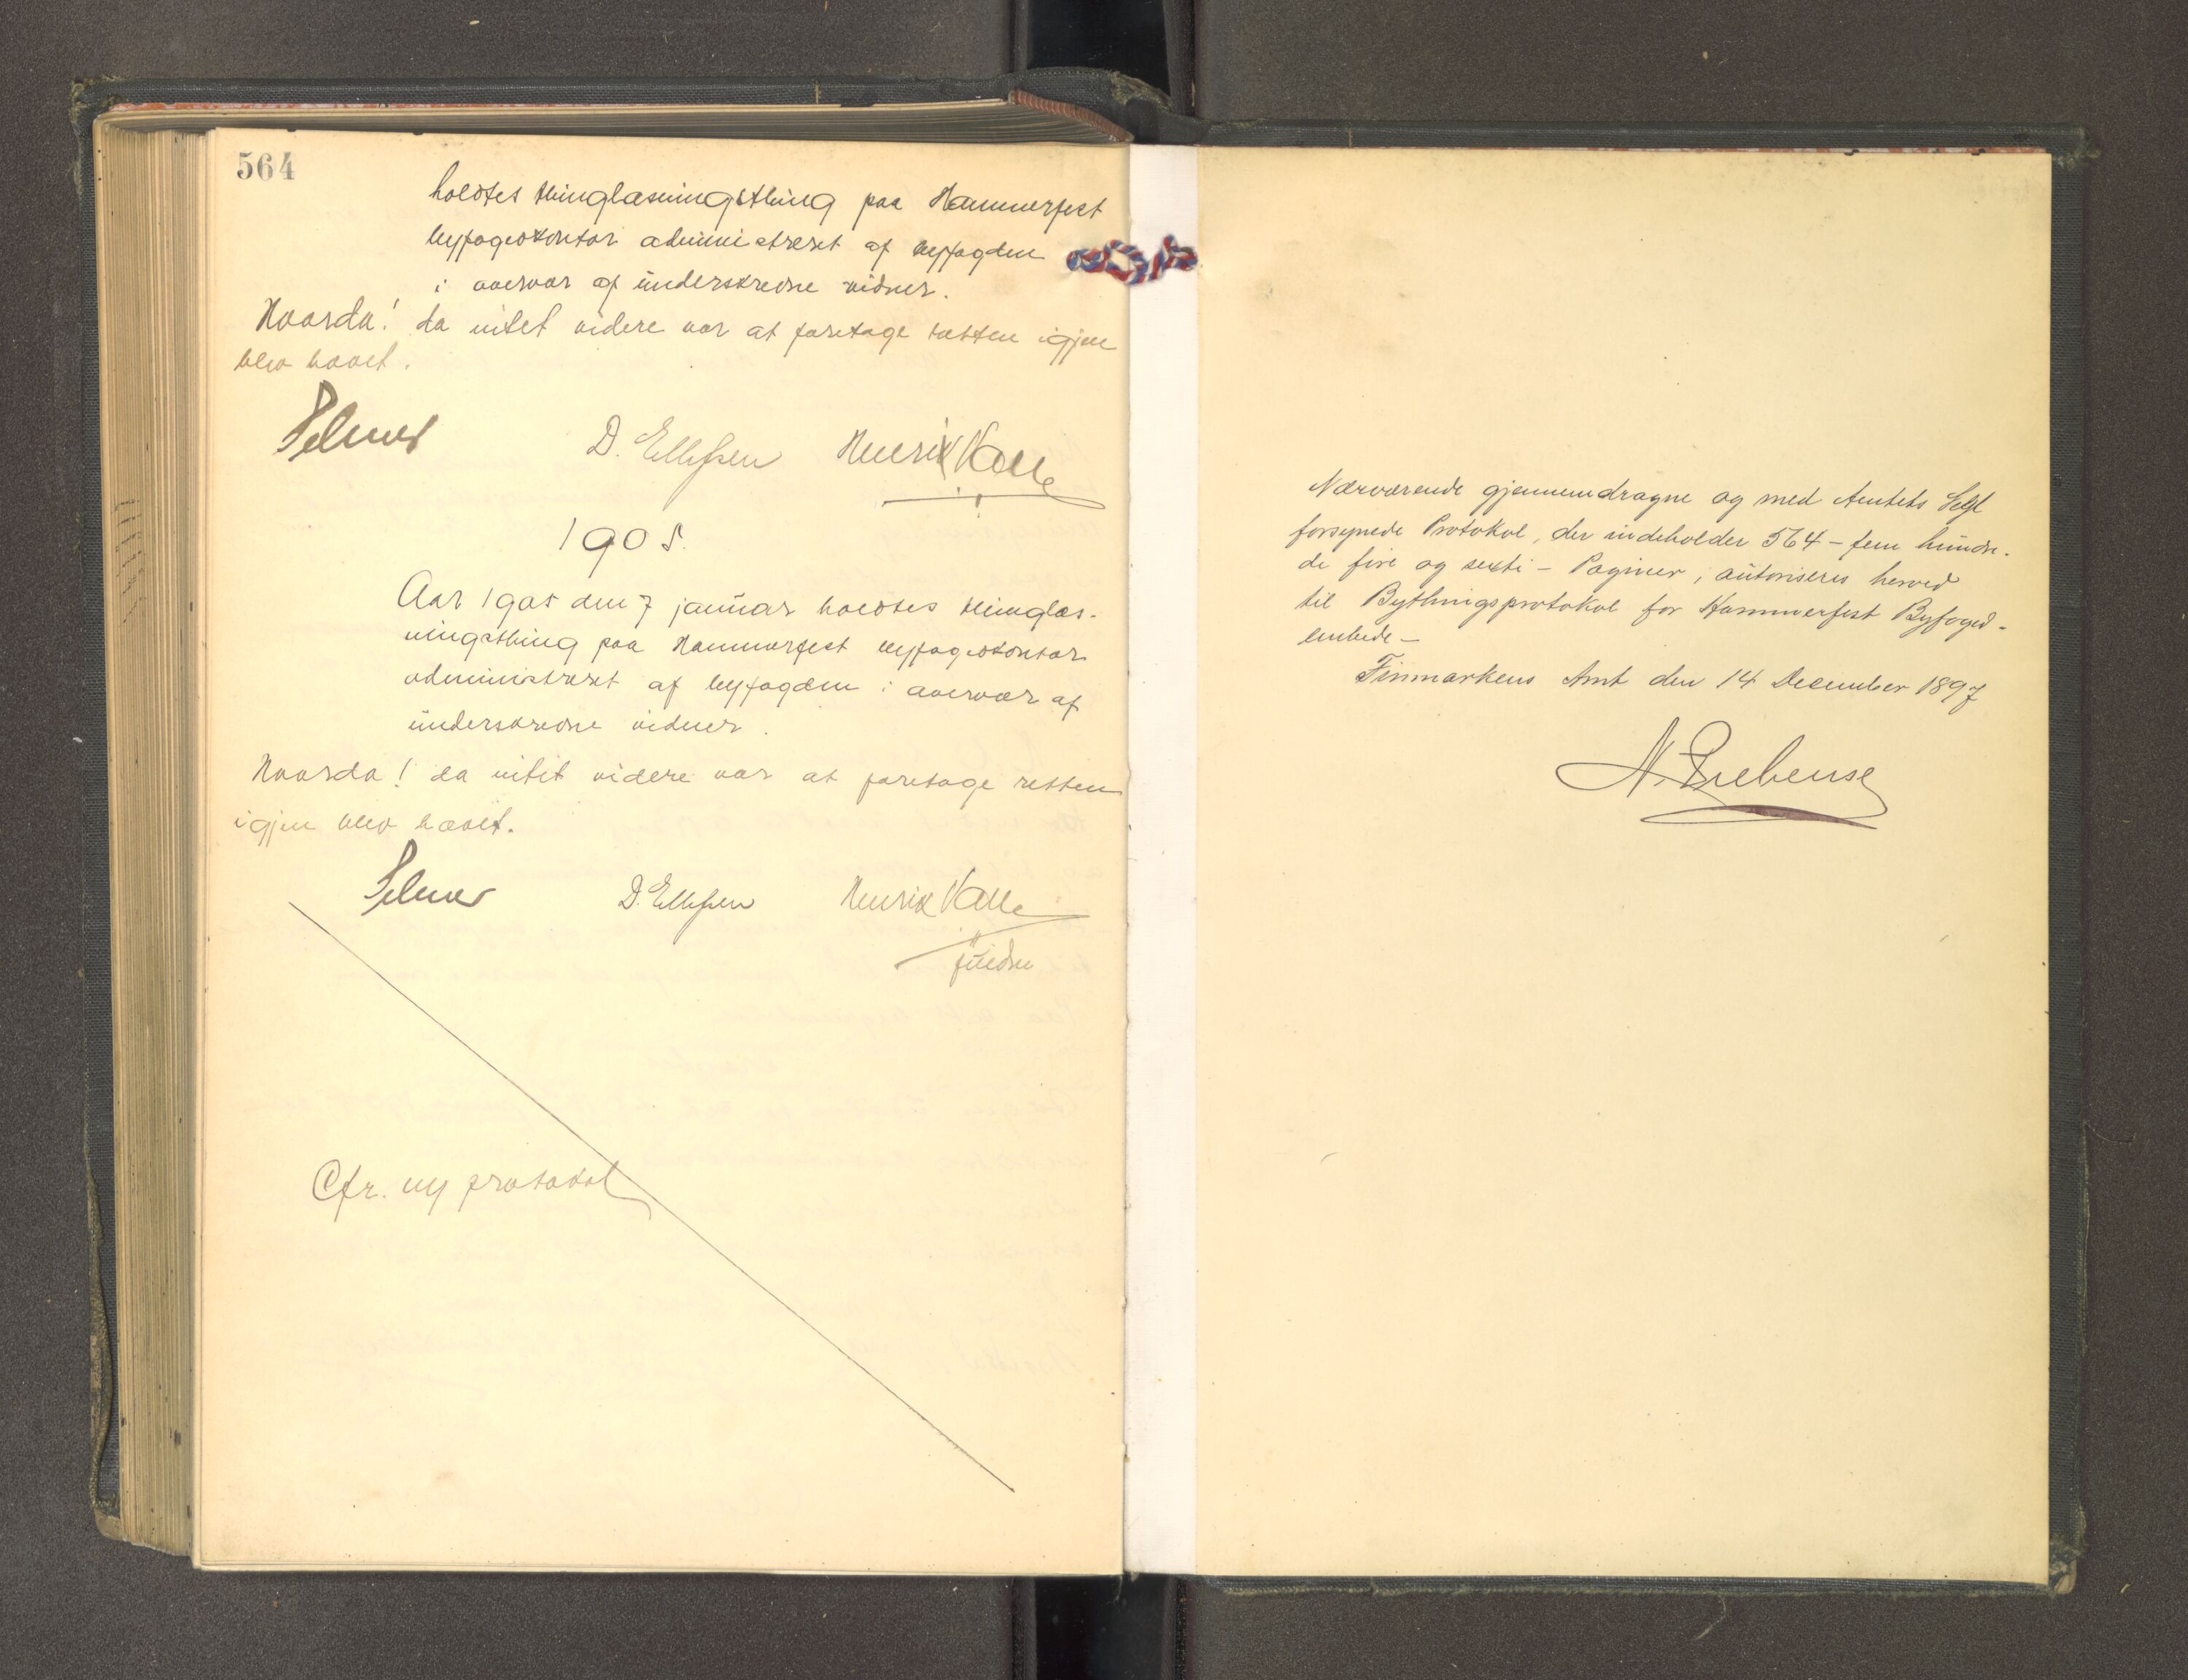 564
holdtes thinglæsningsthing paa Hammerfest
byfogedkontor administreret af byfogden
i overvær af underskrevne vidner.
Hvorda! da intet videre var at foretage retten igjen
blev hævet.
Selmer D. Ellefsen Henrik Valle
1905.
Aar 1905 den 7 januar holdtes thinglæs-
ningsthing paa Hammerfest byfogedkontor
administreret af byfogden i overvær af
underskrevne vidner.
Hvorda! da intet videre var at foretage retten
igjen blev hævet.
Selmer D. Ellefsen Henrik Valle
Cfr. ny protokol
Nærværende gjennemdragne og med Amtets Segl
forsynede Protokol, der indeholder 564 – fem hundre-
de fire og sexti – Paginer, autoriseres herved
til Bythingsprotokol for Hammerfest Byfoged-
embede –
Finmarkens Amt den 14 December 1897
N. Prebensen